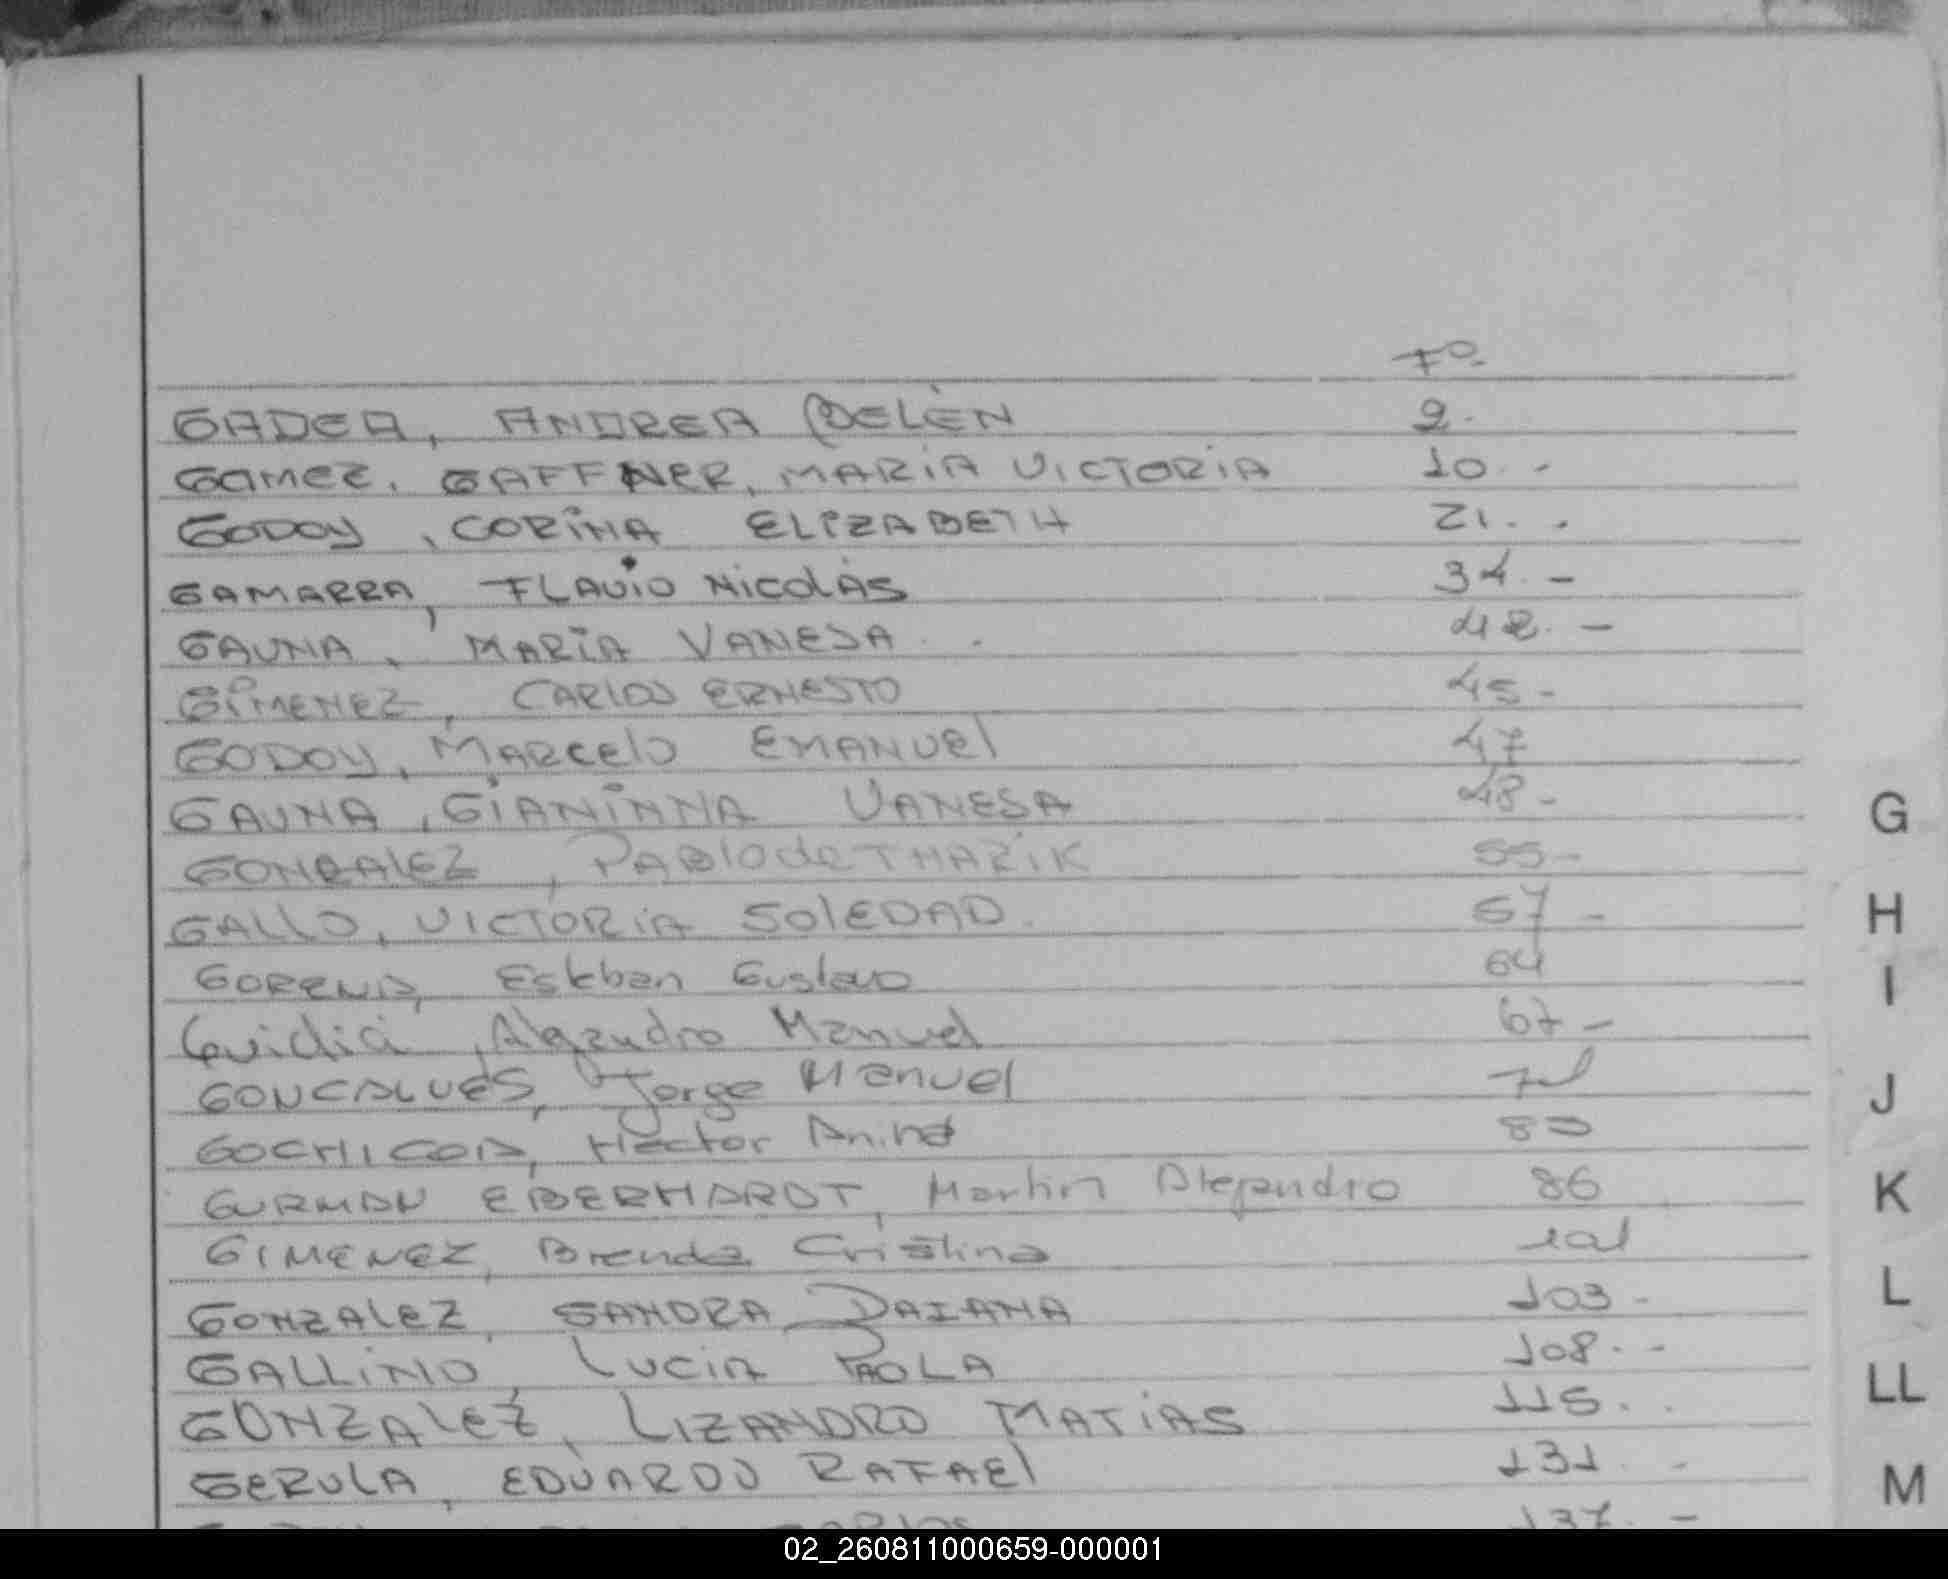 Fº
GADEA, ANDREA BELÉN 2.
GAMEZ, GAFFNER, MARIA VICTORIA 10. -
GODOY, CORINA ELIZABETH 21. .
GAMARRA, FLAVIO NICOLÁS 34. -
GAUNA, MARIA VANESA . . 42. -
GIMENEZ, CARLOS ERNESTO 45 -
GODOY, MARCELO EMANUEL 47
GAUNA, GIANINNA VANESA 48 -
GONZALEZ, 55 -
GALLO, VICTORIA SOLEDAD. 57 -
Esteban Gustavo 64
Manuel 67 -
GONCALVES, Jorge Manuel
GOCHICOA, Hector 80
GURMAN EBERHARDT, Martin Alejandro 86
GIMENEZ, Brenda Cristina 101
GONZALEZ, SANDRA DAIANA 103 -
GALLINO, LUCIA PAOLA 108. -
GONZALEZ, LIZANDRO MATIAS 115. .
GERULA, EDUARDO RAFAEL 131. -
137. -
G
H
I
J
K
L
LL
M
02_260811000659-000001